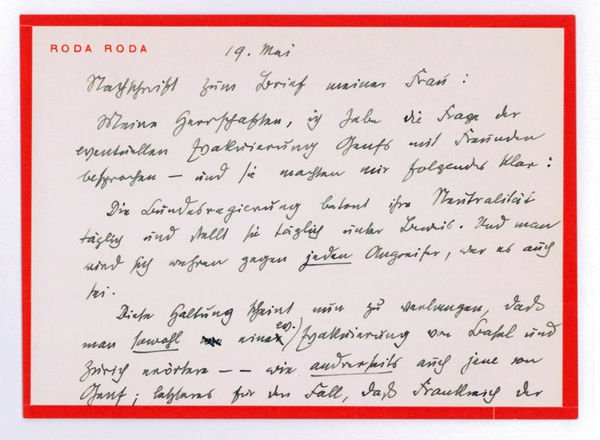 RODA RODA
19. Mai
Nachschrift zum Brief meiner Frau:
Meine Herrschaften, ich habe die Frage der
eventuellen Evakuierung Genfs mit Freunden
besprochen — und sie machten mir folgendes klar:
Die Bundesregierung betont ihre Neutralität
täglich und stellt sie täglich unter Beweis. Und man
wird sich wehren gegen jeden Angreifer, wer es auch
sei.
Diese Haltung scheint nun zu verlangen, daß
man sowohl eine (ev.) Evakuierung von Basel und
Zürich erörtere –– wie andrerseits auch jene von
Genf; letzteres für den Fall, daß Frankreich der